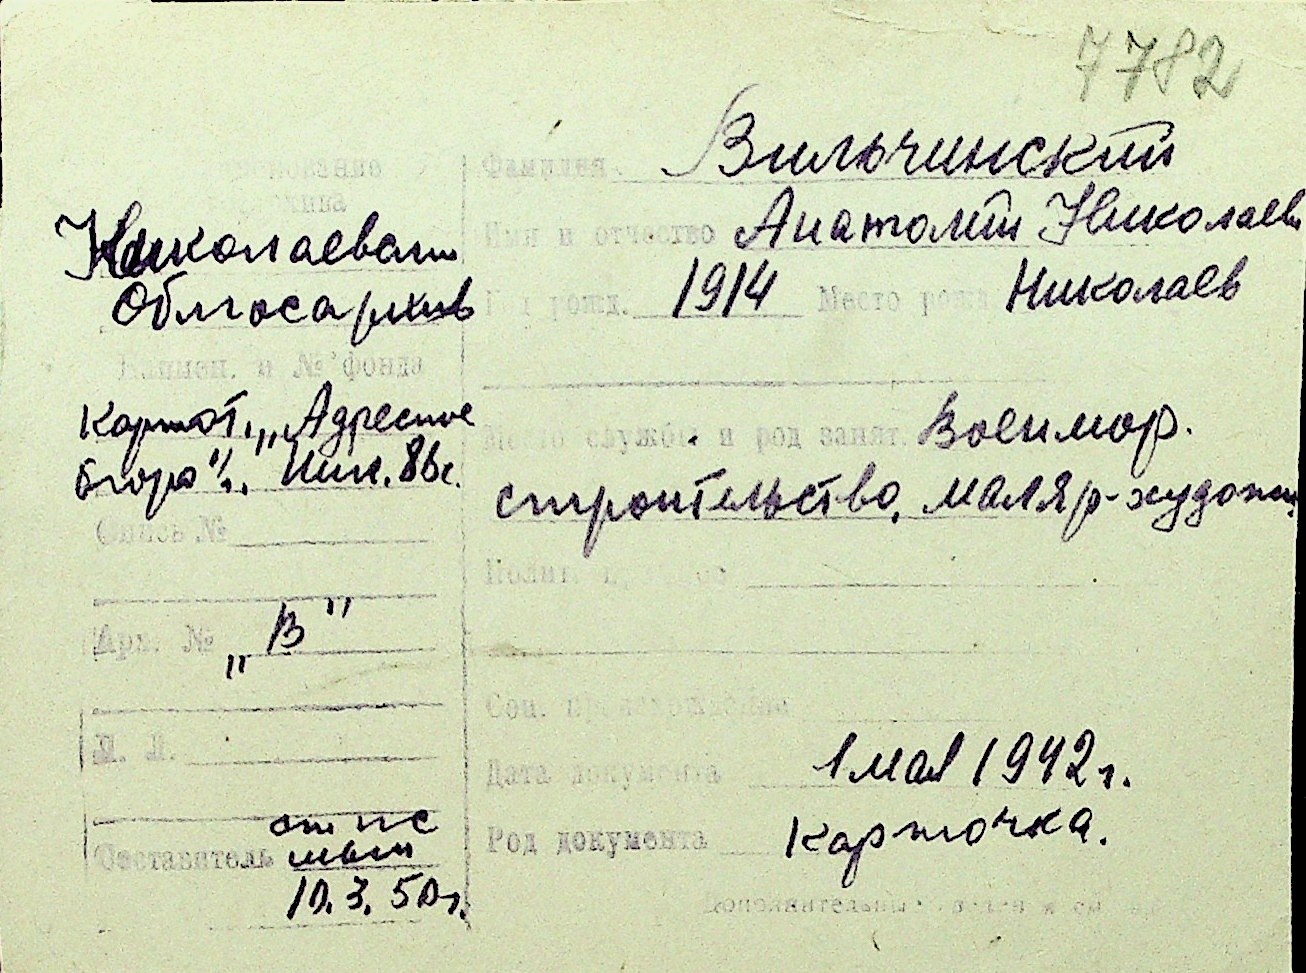 7782
Наименование
архива
Николаевский
Облгосархив
Наимен. и № фонда
Картот. „Адресное
бюро".
Опись №
Арх. № „В"
Л. Л.
Составитель
10.3.50г.
Фамилия Вильчинский
Имя и отчество Анатолий Николаев
Год рожд. 1914 Место рожд Николаев
Место службы и род занят. Военмор.
строительство, маляр-художн
Полит.
Соц. происхождение
Дата документа 1 мая 1942г.
Род документа Карточка.